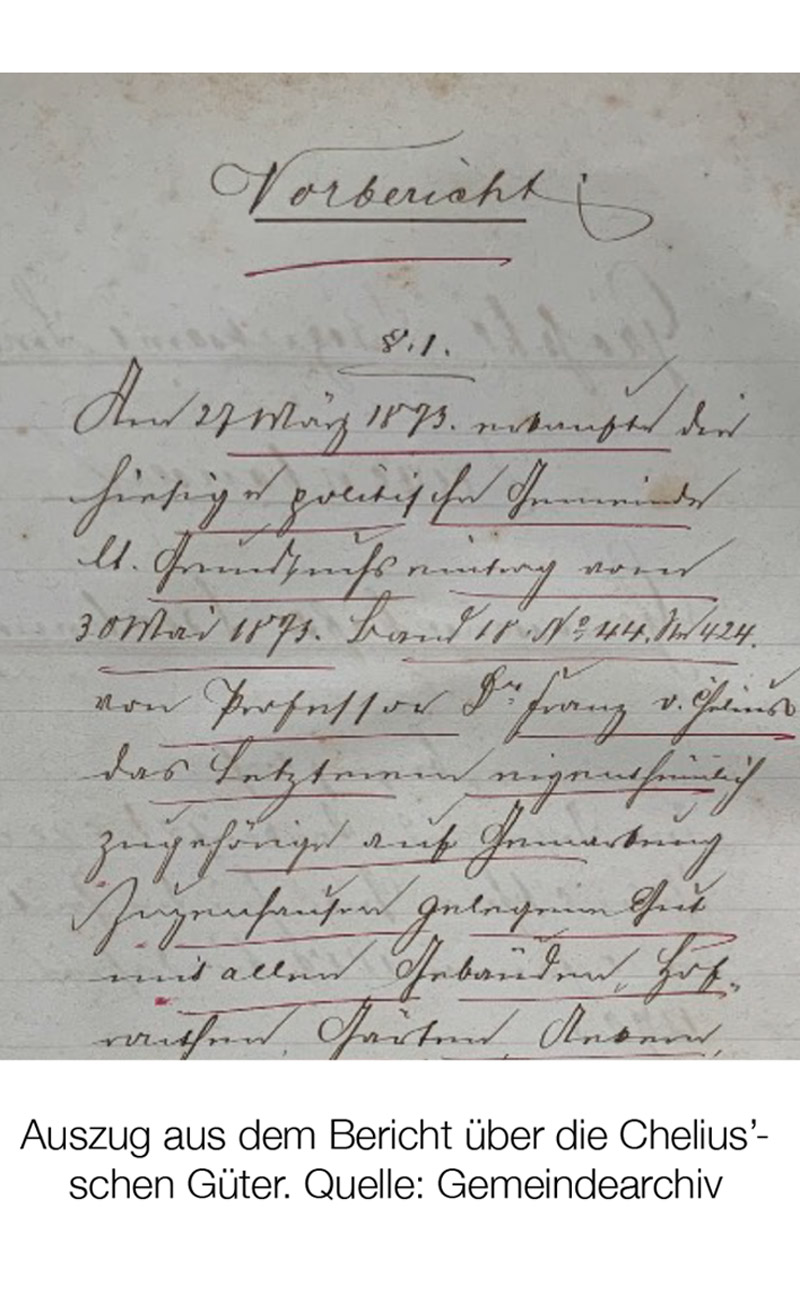 Vorbericht
§. 1.
Am 27 März 1873. erkaufte die
hiesige politische Gemeinde
lt. Grundbuchseintrag vom
30 Mai 1873. Band 18. No 44. 424.
von Professor Dr Franz v. Chelius
das Letzterem eigenthümlich
zugehörige auf Gemarkung
gelegene Gut
mit allen Gebäuden, Hof„
raithen, Gärten, Aeckern,
Auszug aus dem Bericht über die Chelius’-
schen Güter. Quelle: Gemeindearchiv